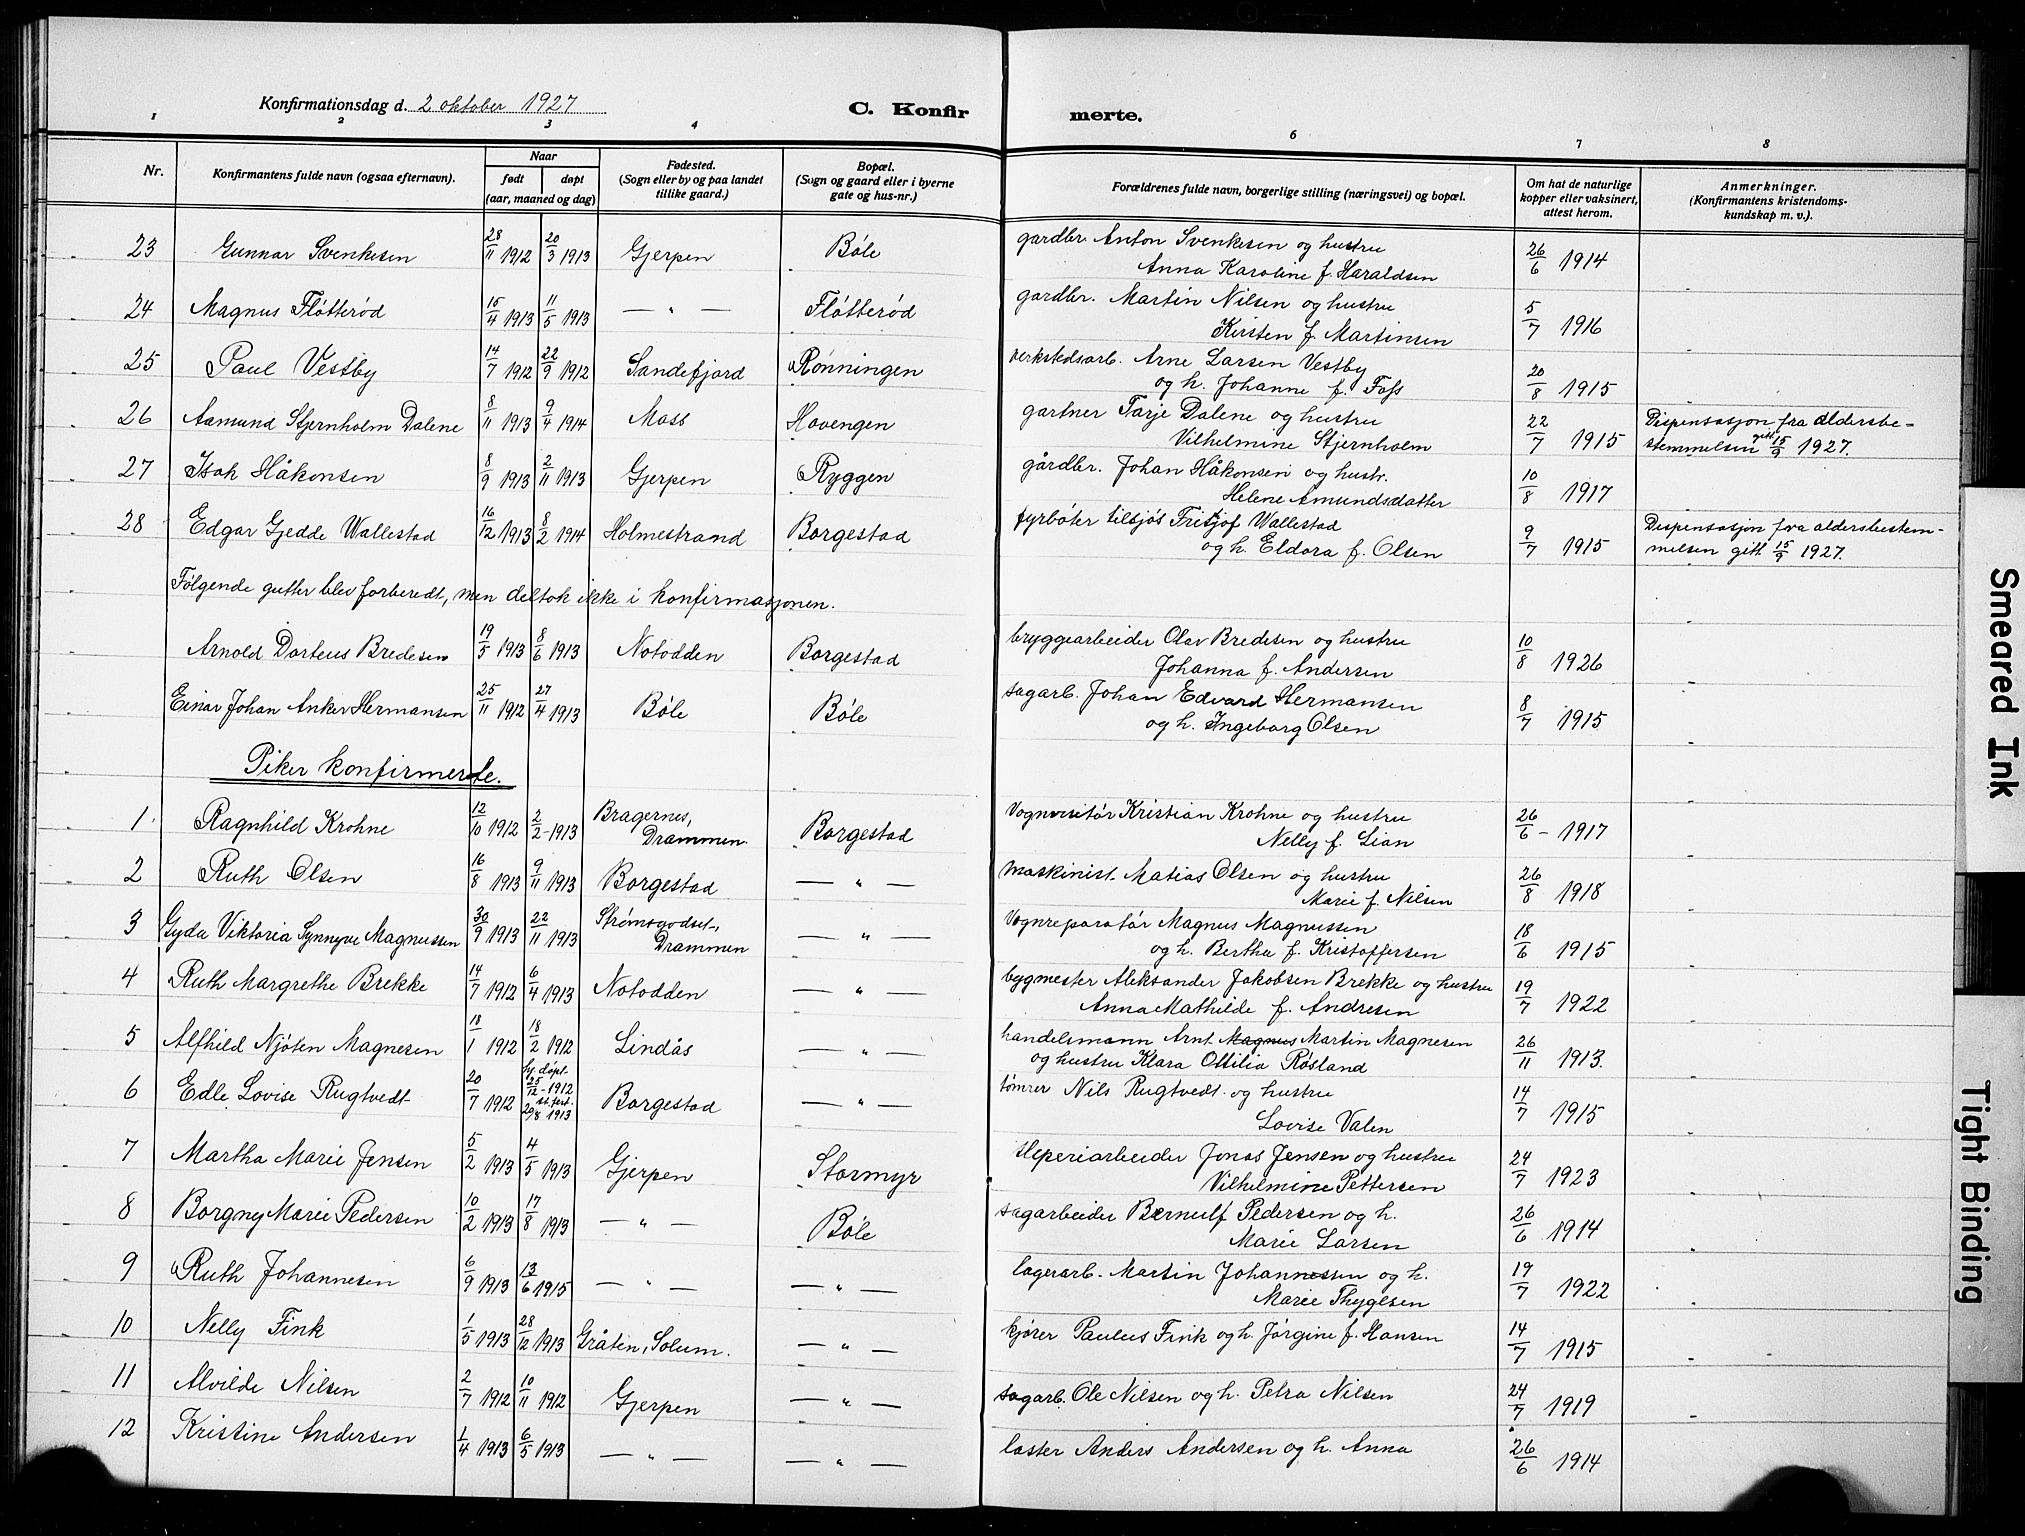 Konfirmationsdag d. 2 oktober 1927
C. Konfirmerte.
1 2 3 4 6 7 8
Nr.
Konfirmantens fulde navn (ogsaa efternavn).
Naar
født døpt
(aar, maaned og dag)
Fødested.
(Sogn eller by og paa landet
tillike gaard.)
Bopæl.
(Sogn og gaard eller i byerne
gate og hus-nr.)
Forældrenes fulde navn, borgerlige stilling (næringsvei) og bopæl.
Om hat de naturlige
kopper eller vaksinert,
attest herom.
Anmerkninger.
(Konfirmantens kristendoms-
kundskap m. v.)
23 Gunnar Svenkesen 28/11 1912 20/3 1913 Gjerpen Bøle gardbr. Anton Svenkesen og hustru
Anna Karoline f. Haraldsen 26/6 1914
24 Magnus Fløtterød 15/4 1913 11/5 1913 — " — Fløtterød gardbr. Martin Nilsen og hustru
Kirsten f. Martinsen 5/7 1916
25 Paul Vestby 14/7 1912 22/9 1912 Sandefjord Rønningen verkstedsarb. Arne Larsen Vestby
og h. Johanne f. Foss 20/8 1915
26 Aamund Stjernholm Dalene 8/11 1913 9/4 1914 Moss Hovengen gartner Tarje Dalene og hustru
Vilhelmine Stjernholm 22/7 1915 Dispensasjon fra aldersbe-
stemmelsen gitt 15/9 1927.
27 Isak Håkonsen 8/9 1913 2/11 1913 Gjerpen Ryggen gårdbr. Johan Håkonsen og hustr.
Helene Amundsdatter 10/8 1917
28 Edgar Gjedde Wallestad 16/12 1913 8/2 1914 Holmestrand Borgestad fyrbøter tilsjøs Fritjof Wallestad
og h. Eldora f. Olsen 9/7 1915 Dispensasjon fra aldersbestem-
melsen gitt 15/9 1927.
Følgende gutter blev forberedt, men deltok ikke i konfirmasjonen.
Arnold Dorteus Bredesen 19/5 1913 8/6 1913 Notodden Borgestad bryggearbeider Olav Bredesen og hustru
Johanna f. Andersen 10/8 1926
Einar Johan Anker Hermansen 25/11 1912 27/4 1913 Bøle Bøle sagarb. Johan Edvard Hermansen
og h. Ingeborg Olsen 8/7 1915
Piker konfirmerte.
1 Ragnhild Krohne 12/10 1912 2/2 - 1913 Bragernes,
Drammen. Borgestad Vognvisitør Kristian Krohne og hustru
Nelly f. Lian 26/6 - 1917
2 Ruth Olsen 16/8 1913 9/11 1913 Borgestad — " — maskinist. Matias Olsen og hustru
Marie f. Nilsen 26/8 1918
3 Gyda Viktoria Synnyve Magnussen 30/9 1913 22/11 1913 Strømsgodset,
Drammen — " — Vognreparatør Magnus Magnussen
og h. Bertha f. Kristoffersen 18/6 1915
4 Ruth Margrethe Brekke 14/7 1912 6/4 1913 Notodden — " — bygmester Aleksander Jakobsen Brekke og hustru
Anna Mathilde f. Andresen 19/7 1922
5 Alfhild Njøten Magnesen 18/1 1912 18/2 1912 Lindås — " — handelsmann Arnt Magnus Martin Magnesen
og hustru Klara Ottilia Røsland 26/11 1913.
6 Edle Lovise Rugtvedt 20/7 1912 hj. døpt
25/12 - 1912
st. fest.
20/8 1913 Borgestad — " — tømrer Nils Rugtvedt og hustru
Lovise Valen 14/7 1915
7 Martha Marie Jensen 5/2 1913 4/5 1913 Gjerpen Stormyr sleperiarbeider Jonas Jensen og hustru
Vilhelmine Pettersen 24/7 1923
8 Borgny Marie Pedersen 10/2 1913 17/8 1913 — " — Bøle sagarbeider Bernulf Pedersen og h.
Marie Larsen 26/6 1914
9 Ruth Johannesen 6/9 1913 13/6 1915 — " — — " — lagerarb. Martin Johannesen og h.
Marie Thygesen 19/7 1922
10 Nelly Fink 1/5 1913 28/12 1913 Gråten, Solum. — " — kjører Paulus Fink og h. Jørgine f. Hansen 14/7 1915
11 Alvilde Nilsen 2/7 1912 10/11 1912 Gjerpen — " — sagarb. Ole Nilsen og h. Petra Nilsen 24/7 1919
12 Kristine Andersen 1/4 1913 6/5 1913 — " — — " — laster Anders Andersen og h. Anna 26/6 1914
Smeared Ink
Tight Binding